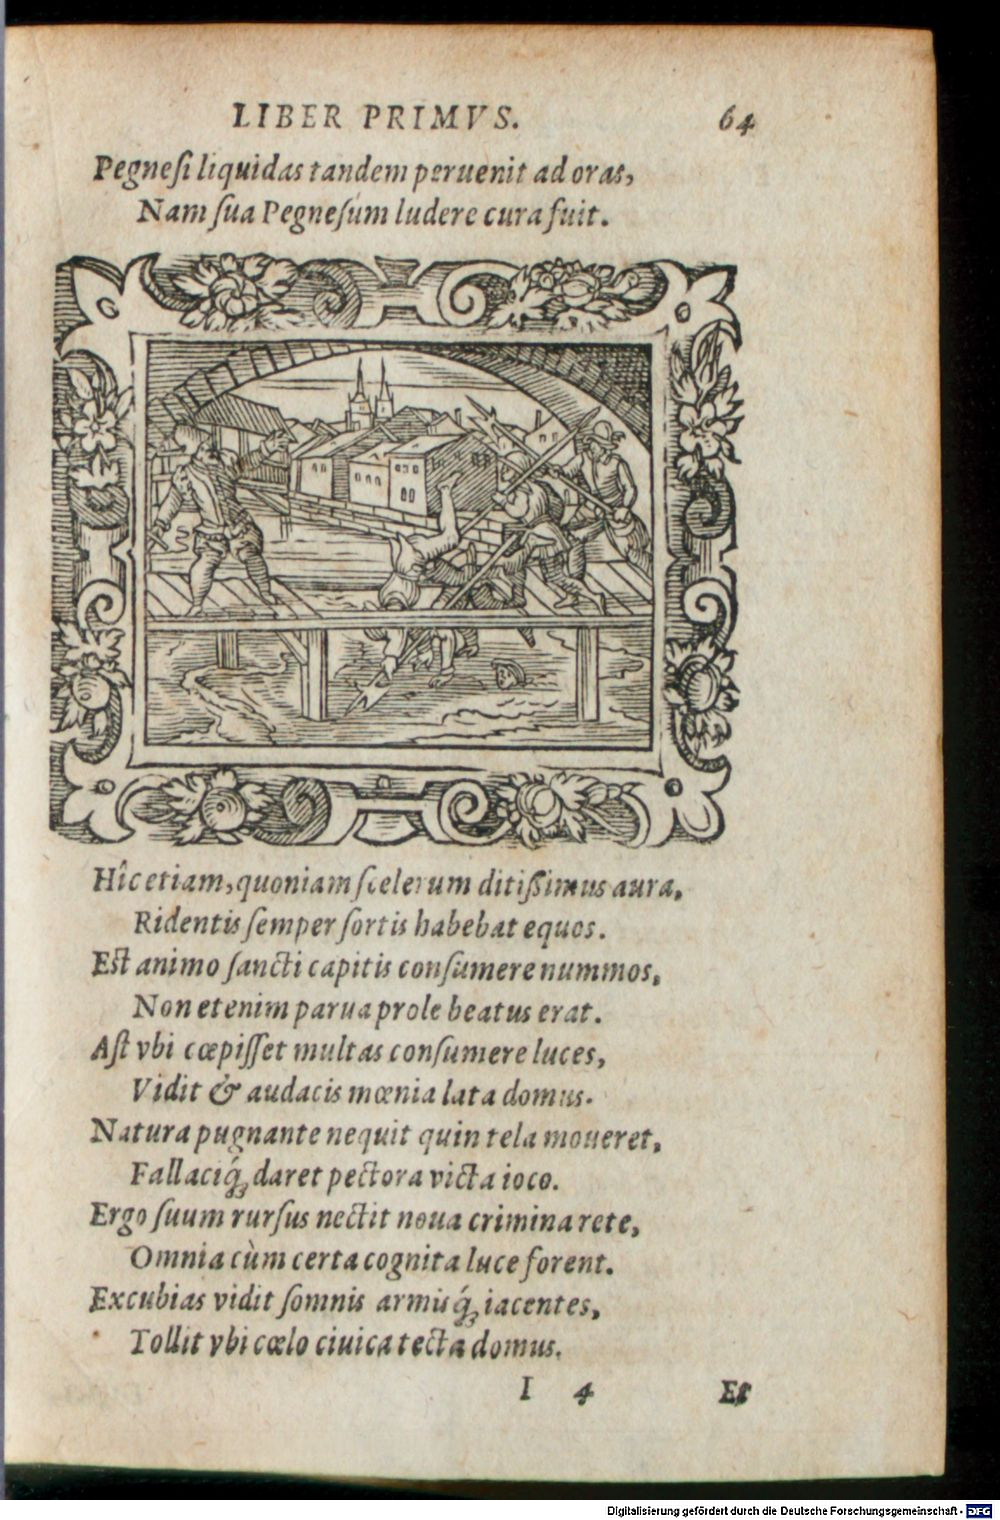 LIBER PRIMVS. 64
Pegneſi liquidas tandem peruenit ad oras,
Nam ſua Pegneſum ludere cura fuit.
Hîc etiam, quoniam ſcelerum ditiſsimus aura,
Ridentis ſemper ſortis habebat equos.
Eſt animo ſancti capitis conſumere nummos,
Non etenim parua prole beatus erat.
Aſt vbi cœpiſſet multas conſumere luces,
Vidit & audacis mœnia lata domus.
Natura pugnante nequit quin tela moueret,
Fallaciq́; daret pectora victa ioco.
Ergo ſuum rurſus nectit noua crimina rete,
Omnia cùm certa cognita luce forent.
Excubias vidit ſomnis armisq́; iacentes,
Tollit vbi cœlo ciuica tecta domus.
I 4 Et
Digitalisierung gefördert durch die Deutsche Forschungsgemeinschaft - DFG